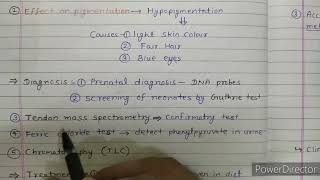 ② Effect on pigmentation → Hypopigmentation
Causes - ① light Skin Colour
② Fair Hair
③ Blue eyes
⇒ Diagnosis:- ① Prenatal diagnosis - DNA probes
② Screening of neonates by Guthrie test
③ Tendon mass spectrometry → Confirmatry test
④ Feric chloride test → detect phenylpyruvate in urine
⑤ Chromatography (TLC)
⇒ Treatment
in diet
③ A
PowerDirector